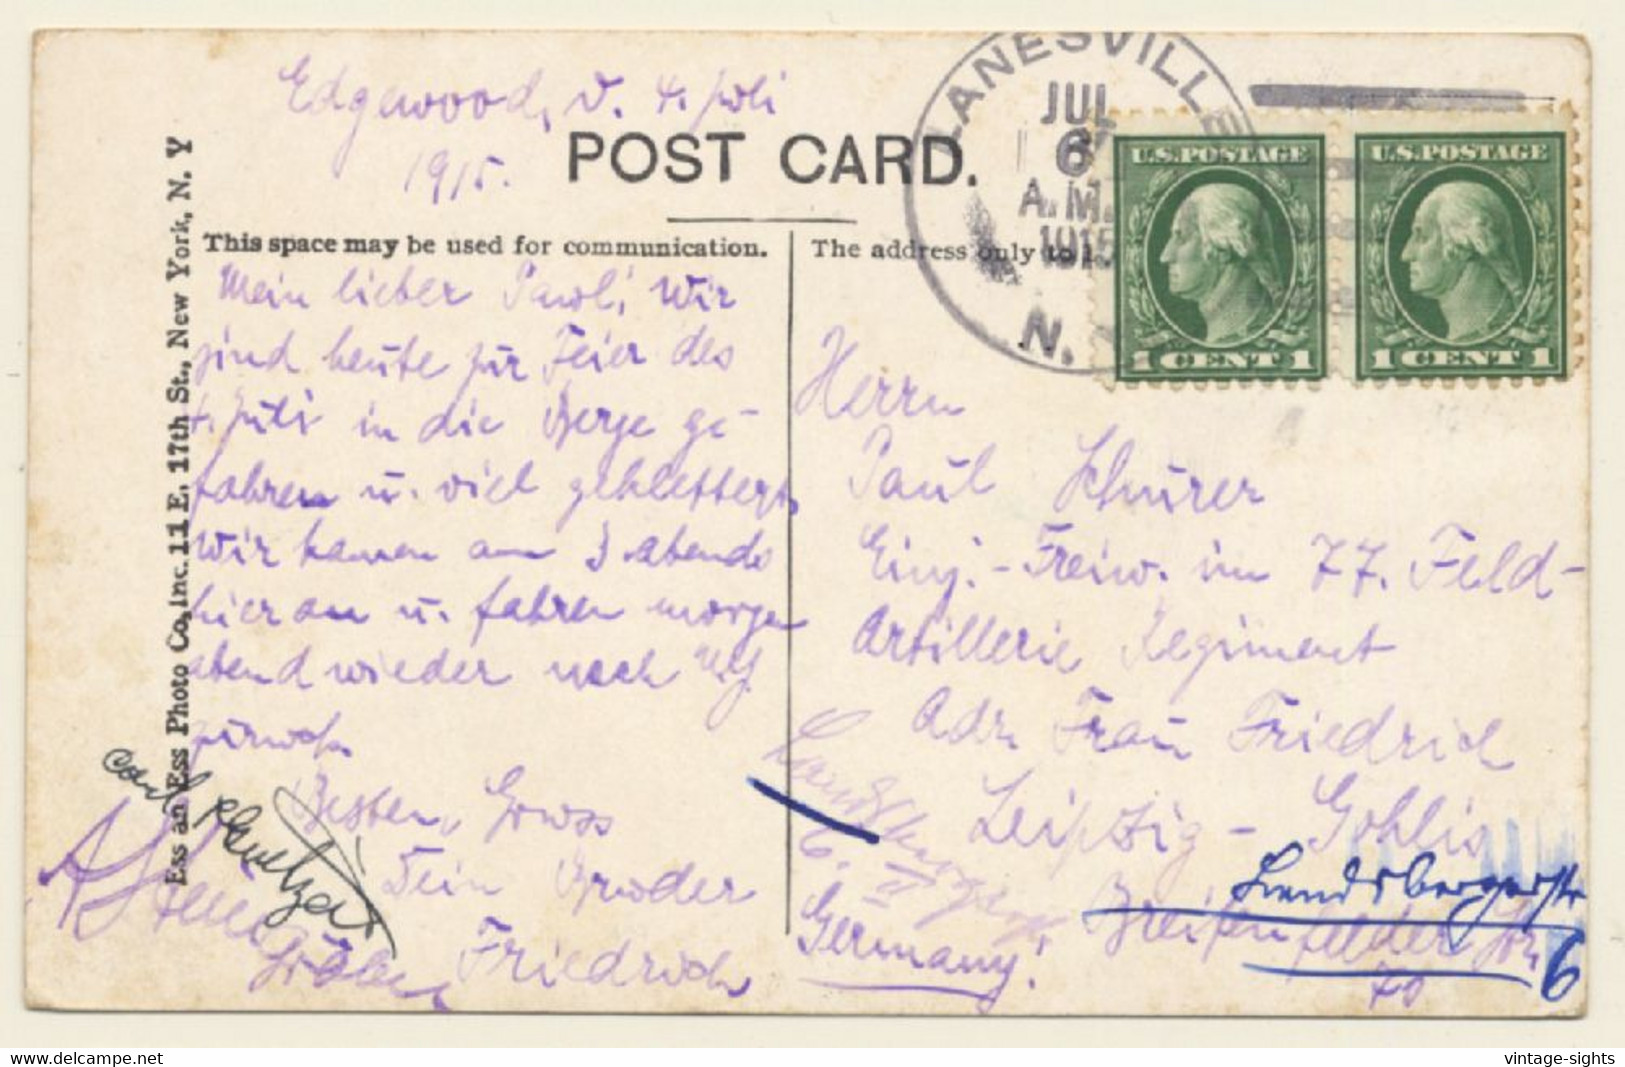 Edgewood, d. 4. Juli
1915.
POST CARD.
This space may be used for communication.
The address only to
Ess an Ess Photo Co., Inc. 11 E. 17th St., New York, N. Y
LANESVILLE
JUL
6
A.M.
1915
N.
U.S. POSTAGE
1 CENT 1
U.S. POSTAGE
1 CENT 1
Mein lieber Paul! Wir
sind heute zur Feier des
4. Juli in die Berge ge-
fahren u. viel geklettert.
Wir kamen am 3. abends
hier an u. fahren morgen
abend wieder nach N.Y.
zurück.
Besten Gruss
Dein Bruder
Friedrich
Herrn
Paul Schurer
Einj.-Freiw. im 77. Feld-
Artillerie Regiment
Adr. Frau Friedrich
Leipzig-Gohlis
Landsbergerstr
6
Breitenfelder Str
70
6.
Germany!
Carl
www.delcampe.net
vintage-sights